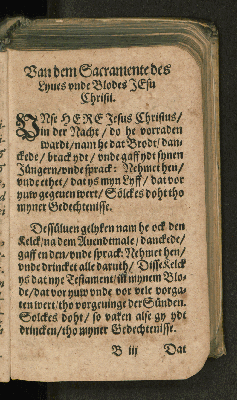 Van dem Sacramente des
Lyues vnde Blodes JEsu
Christi.
VNse HERE Jesus Christus/
in der Nacht/ do he vorraden
wardt/ nam he dat Brodt/ dan-
ckede/ brack ydt/ vnde gaff ydt synen
Jüngern/ vnde sprack: Nehmet hen/
vnde ethet/ dat ys myn Lyff/ dat vor
yuw gegeuen wert/ Sölckes doht tho
myner Gedechtenisse.
Dessüluen gelyken nam he ock den
Kelck/ na dem Auendtmale/ danckede/
gaff en den/ vnde sprack: Nehmet hen/
vnde drincket alle daruth/ Disse Kelck
ys dat nye Testament/ in mynem Blo-
de/ dat vor yuw vnde vor vele vorga-
ten wert/ tho vorgeuinge der Sünden.
Solckes doht/ so vaken alse gy ydt
drincken/ tho myner Gedechtenisse.
B iij Dat